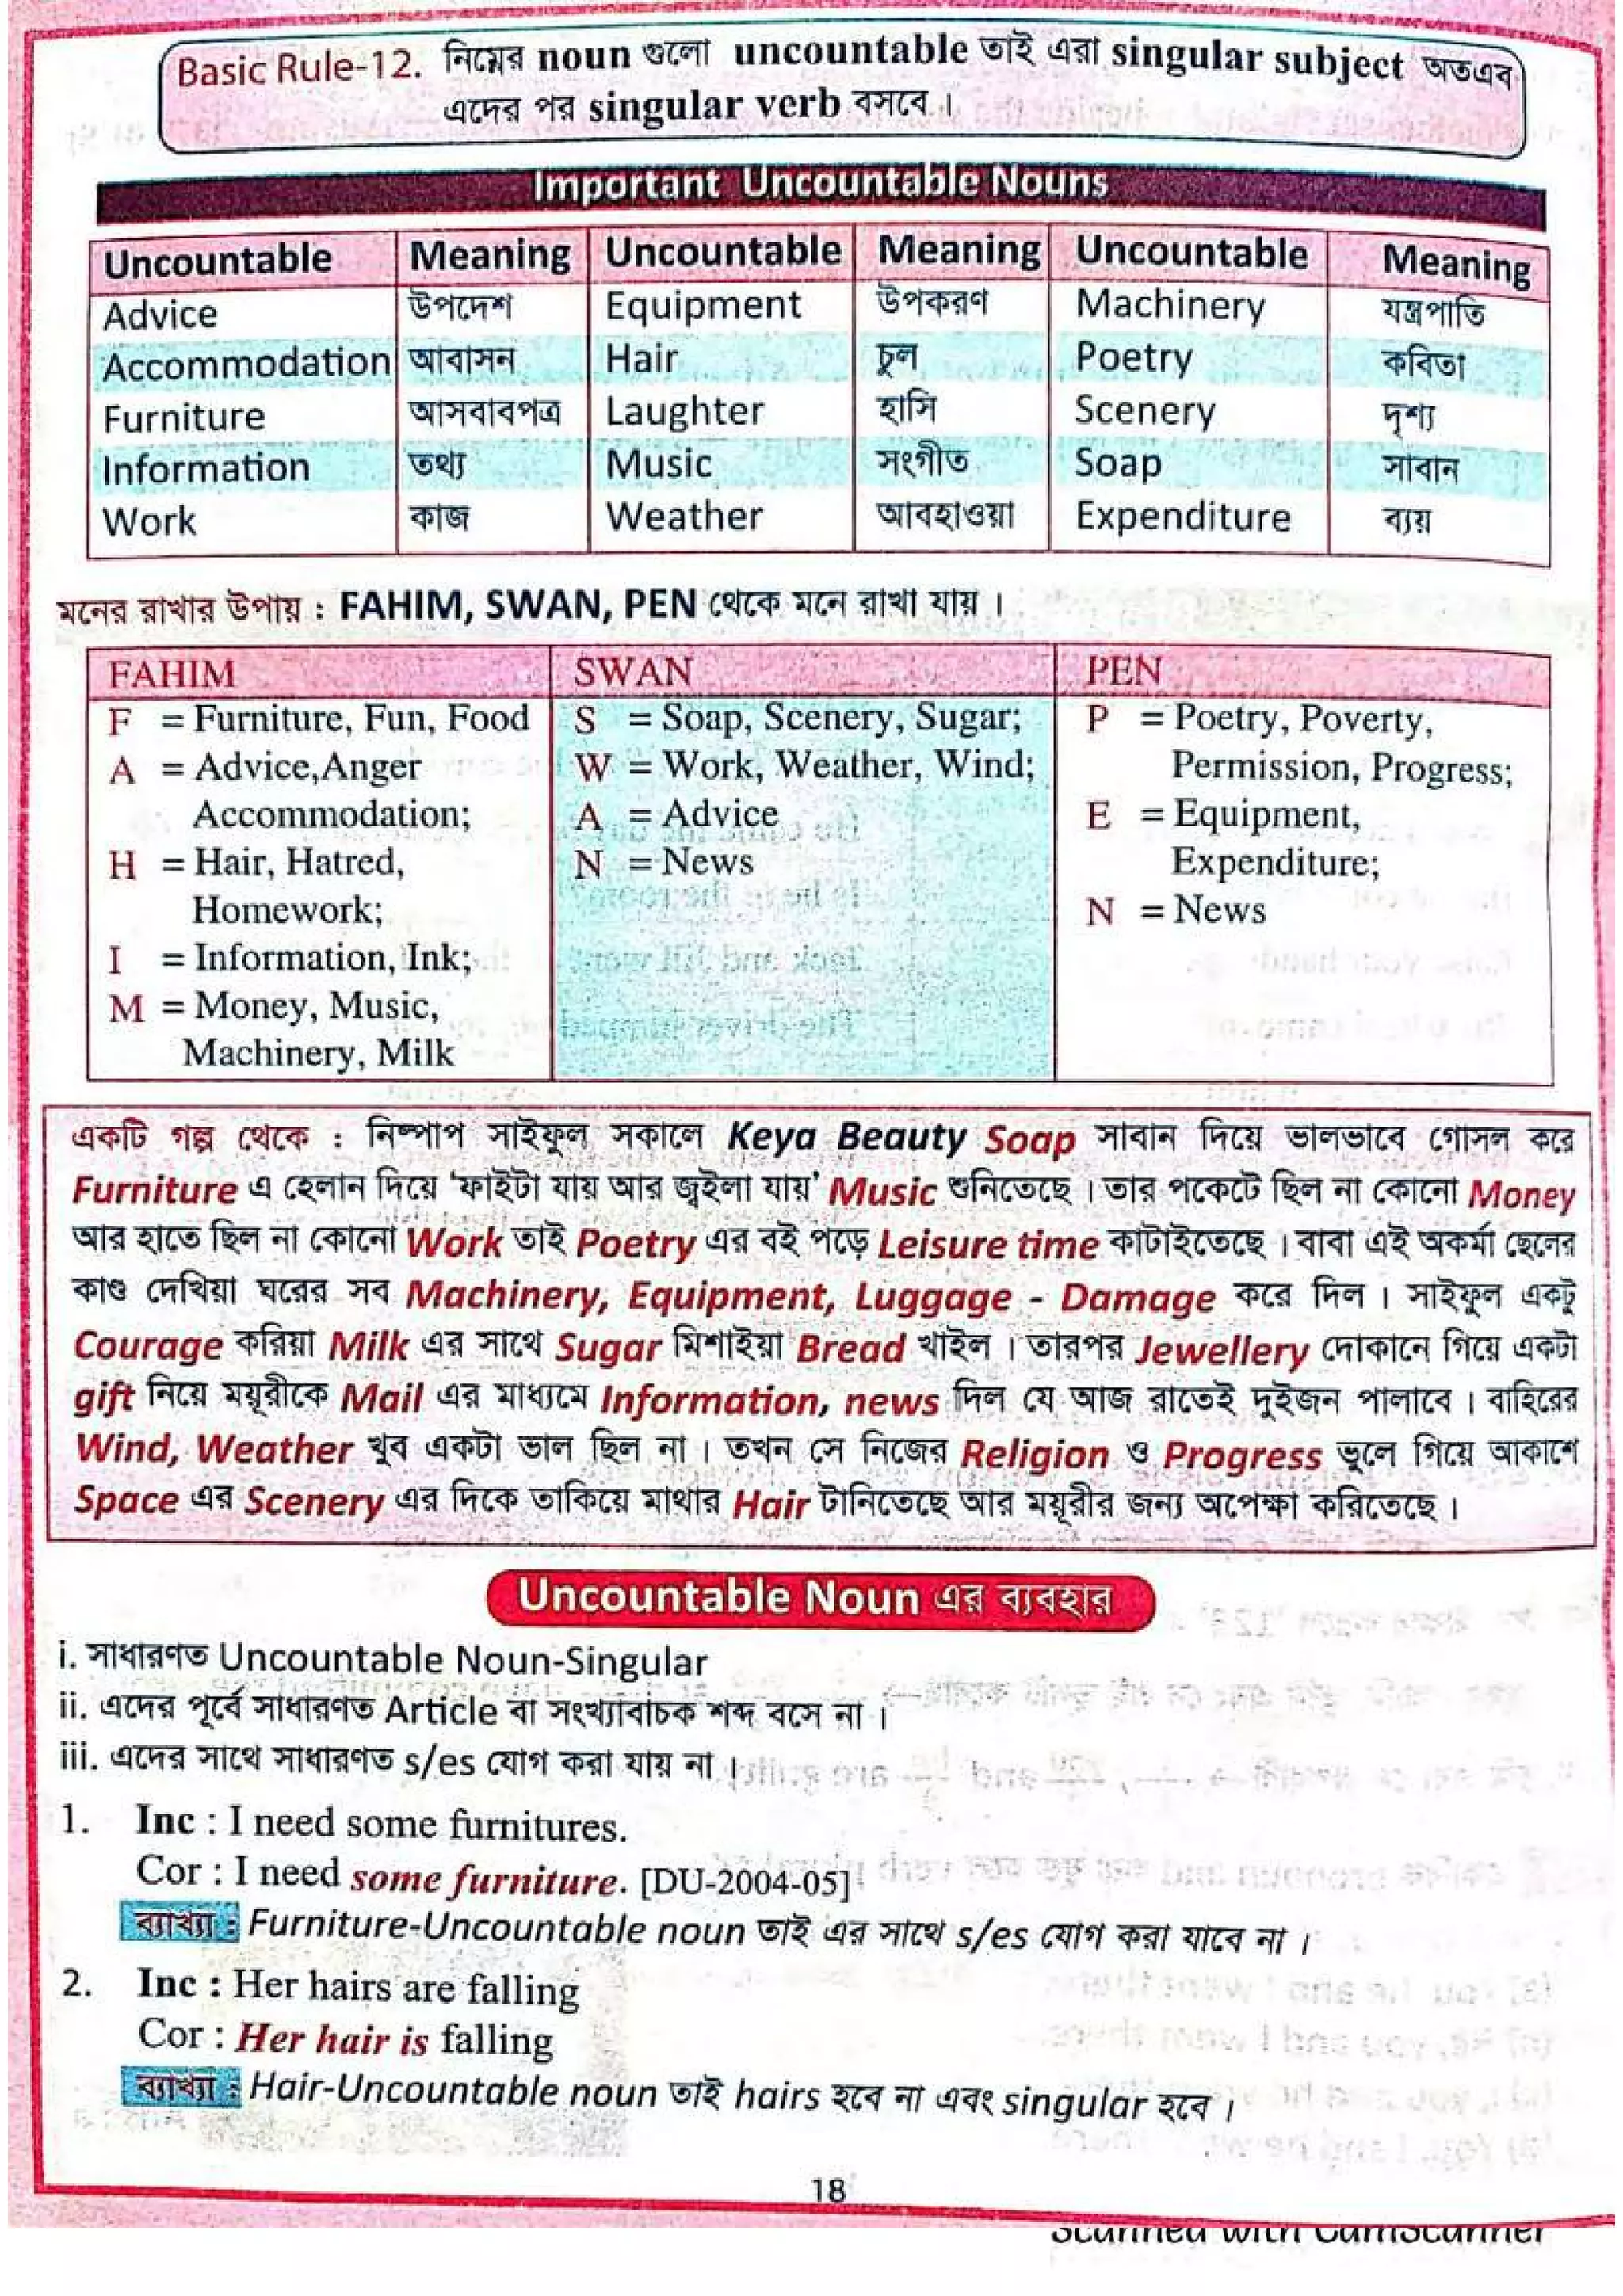 Basic Rule-12. নিম্নের noun গুলো uncountable তাই এরা singular subject অতএব
এদের পর singular verb বসবে।
Important Uncountable Nouns
Uncountable Meaning Uncountable Meaning Uncountable Meaning
Advice উপদেশ Equipment উপকরণ Machinery যন্ত্রপাতি
Accommodation আবাসন Hair চুল Poetry কবিতা
Furniture আসবাবপত্র Laughter হাসি Scenery দৃশ্য
Information তথ্য Music সংগীত Soap সাবান
Work কাজ Weather আবহাওয়া Expenditure ব্যয়
মনের রাখার উপায় : FAHIM, SWAN, PEN থেকে মনে রাখা যায়।
FAHIM
F = Furniture, Fun, Food
A = Advice,Anger
Accommodation;
H = Hair, Hatred,
Homework;
I = Information, Ink;
M = Money, Music,
Machinery, Milk
SWAN
S = Soap, Scenery, Sugar;
W = Work, Weather, Wind;
A = Advice
N = News
PEN
P = Poetry, Poverty,
Permission, Progress;
E = Equipment,
Expenditure;
N = News
একটি গল্প থেকে : নিষ্পাপ সাইফুল সকালে Keya Beauty Soap সাবান দিয়ে ভালভাবে গোসল করে
Furniture এ হেলান দিয়ে ‘ফাইটা যায় আর জ্বইলা যায়’ Music শুনিতেছে। তার পকেটে ছিল না কোনো Money
আর হাতে ছিল না কোনো Work তাই Poetry এর বই পড়ে Leisure time কাটাইতেছে। বাবা এই অকর্মা ছেলের
কাণ্ড দেখিয়া ঘরের সব Machinery, Equipment, Luggage - Damage করে দিল। সাইফুল একটু
Courage করিয়া Milk এর সাথে Sugar মিশাইয়া Bread খাইল। তারপর Jewellery দোকানে গিয়ে একটা
gift নিয়ে ময়ূরীকে Mail এর মাধ্যমে Information, news দিল যে আজ রাতেই দুইজন পালাবে। বাহিরের
Wind, Weather খুব একটা ভাল ছিল না। তখন সে নিজের Religion ও Progress ভুলে গিয়ে আকাশে
Space এর Scenery এর দিকে তাকিয়ে মাথার Hair টানিতেছে আর ময়ূরীর জন্য অপেক্ষা করিতেছে।
Uncountable Noun এর ব্যবহার
i. সাধারণত Uncountable Noun-Singular
ii. এদের পূর্বে সাধারণত Article বা সংখ্যাবাচক শব্দ বসে না।
iii. এদের সাথে সাধারণত s/es যোগ করা যায় না।
1. Inc : I need some furnitures.
Cor : I need some furniture. [DU-2004-05]
ব্যাখ্যা : Furniture-Uncountable noun তাই এর সাথে s/es যোগ করা যাবে না।
2. Inc : Her hairs are falling
Cor : Her hair is falling
ব্যাখ্যা : Hair-Uncountable noun তাই hairs হবে না এবং singular হবে।
18
Scanned with CamScanner